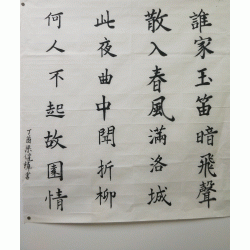 誰家玉笛暗飛聲
散入春風滿洛城
此夜曲中聞折柳
何人不起故園情
丁酉
書